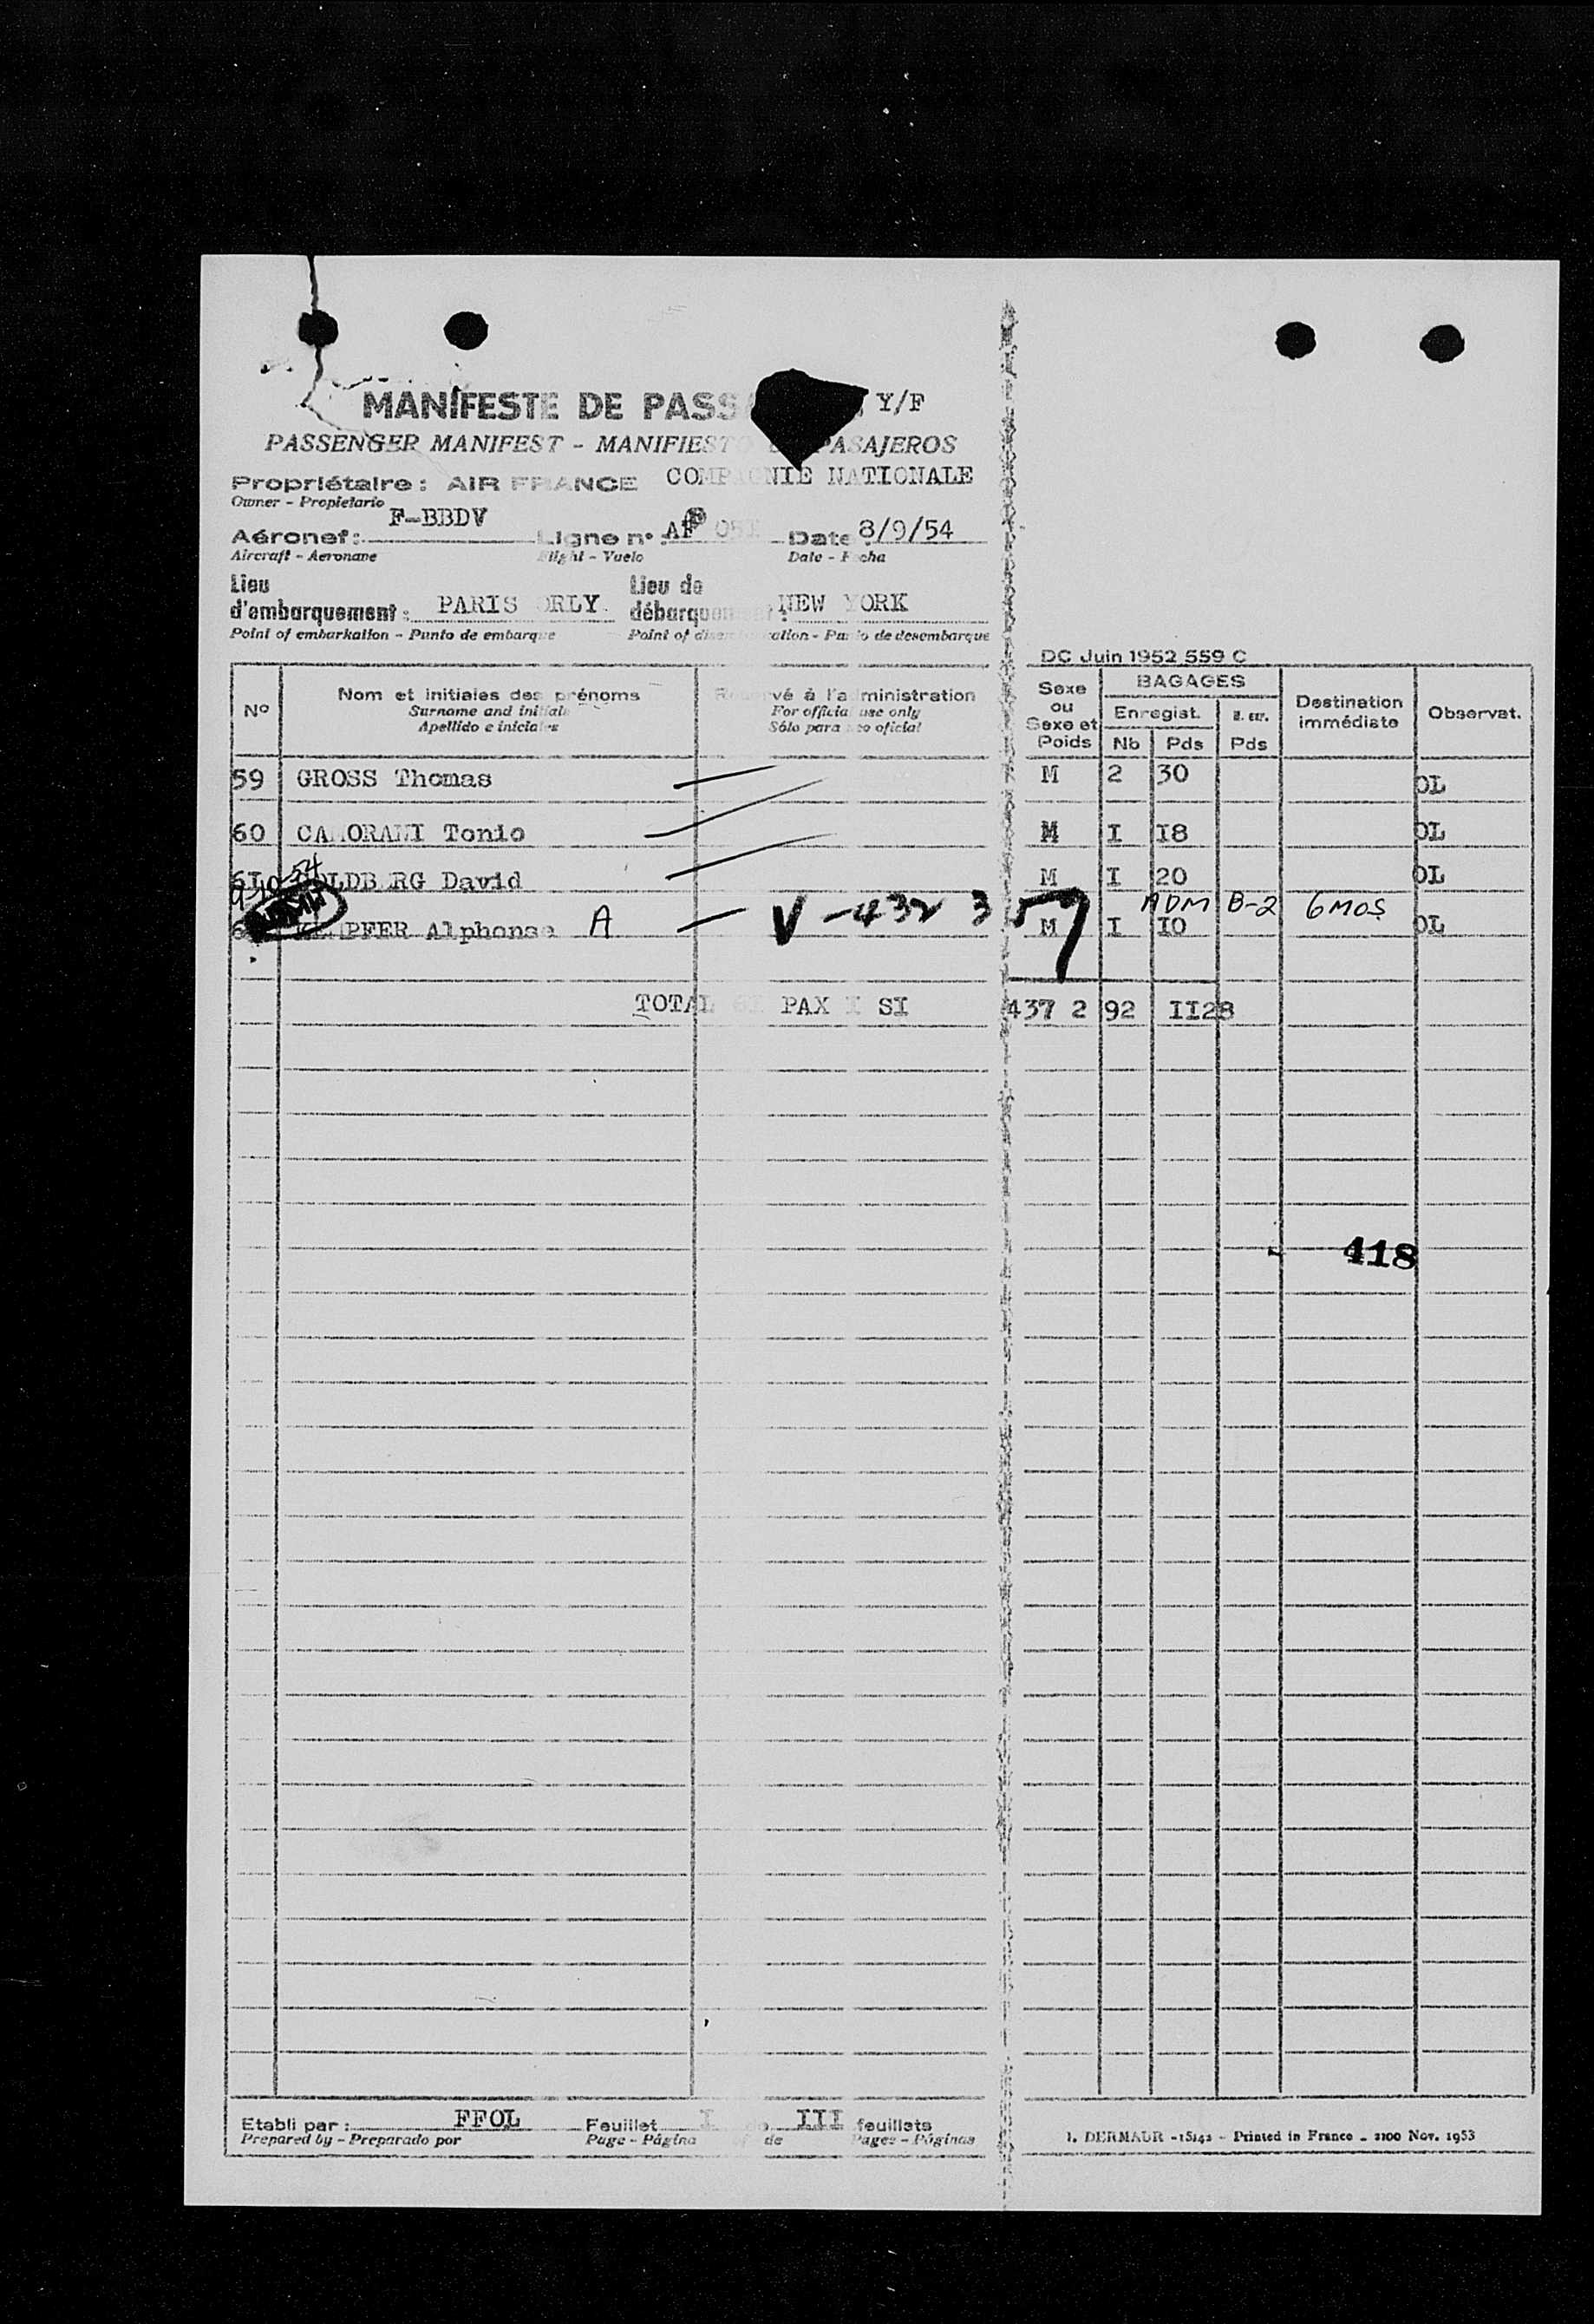 MANIFESTE DE PASS Y/F
PASSENGER MANIFEST - MANIFIESTO PASAJEROS
Propriétaire : AIR FRANCE COMPAGNIE NATIONALE
Owner - Propietario
Aéronef : F-BBDV Ligne n° AF 051 Date 8/9/54
Aircraft - Aeronane Flight - Vuelo Date - Fecha
Lieu d'embarquement : PARIS ORLY. Lieu de débarquement : NEW YORK
Point of embarkation - Punto de embarque Point of disembarcation - Punto de desembarque
DC Juin 1952 559 C
N° Nom et initiales des prénoms Réservé à l'administration Sexe ou Sexe et Poids BAGAGES Destination immédiate Observat.
Surname and initials For official use only Enregist.
Apellido e iniciales Sólo para uso oficial Nb Pds Pds
59 GROSS Thomas M 2 30 OL
60 Tonio M I I8 OL
6I GOLDBERG David M I 20 OL
ADM B-2 6 MOS
Alphonse A V-432 357 M I I0 OL
TOTAL 6I PAX I SI 437 2 92 II28
418
Etabli par : FFOL Feuillet I de III feuillets
Prepared by - Preparado por Page - Página of de Pages - Páginas
I. DERMAUR - 15142 - Printed in France - 2100 Nov. 1953